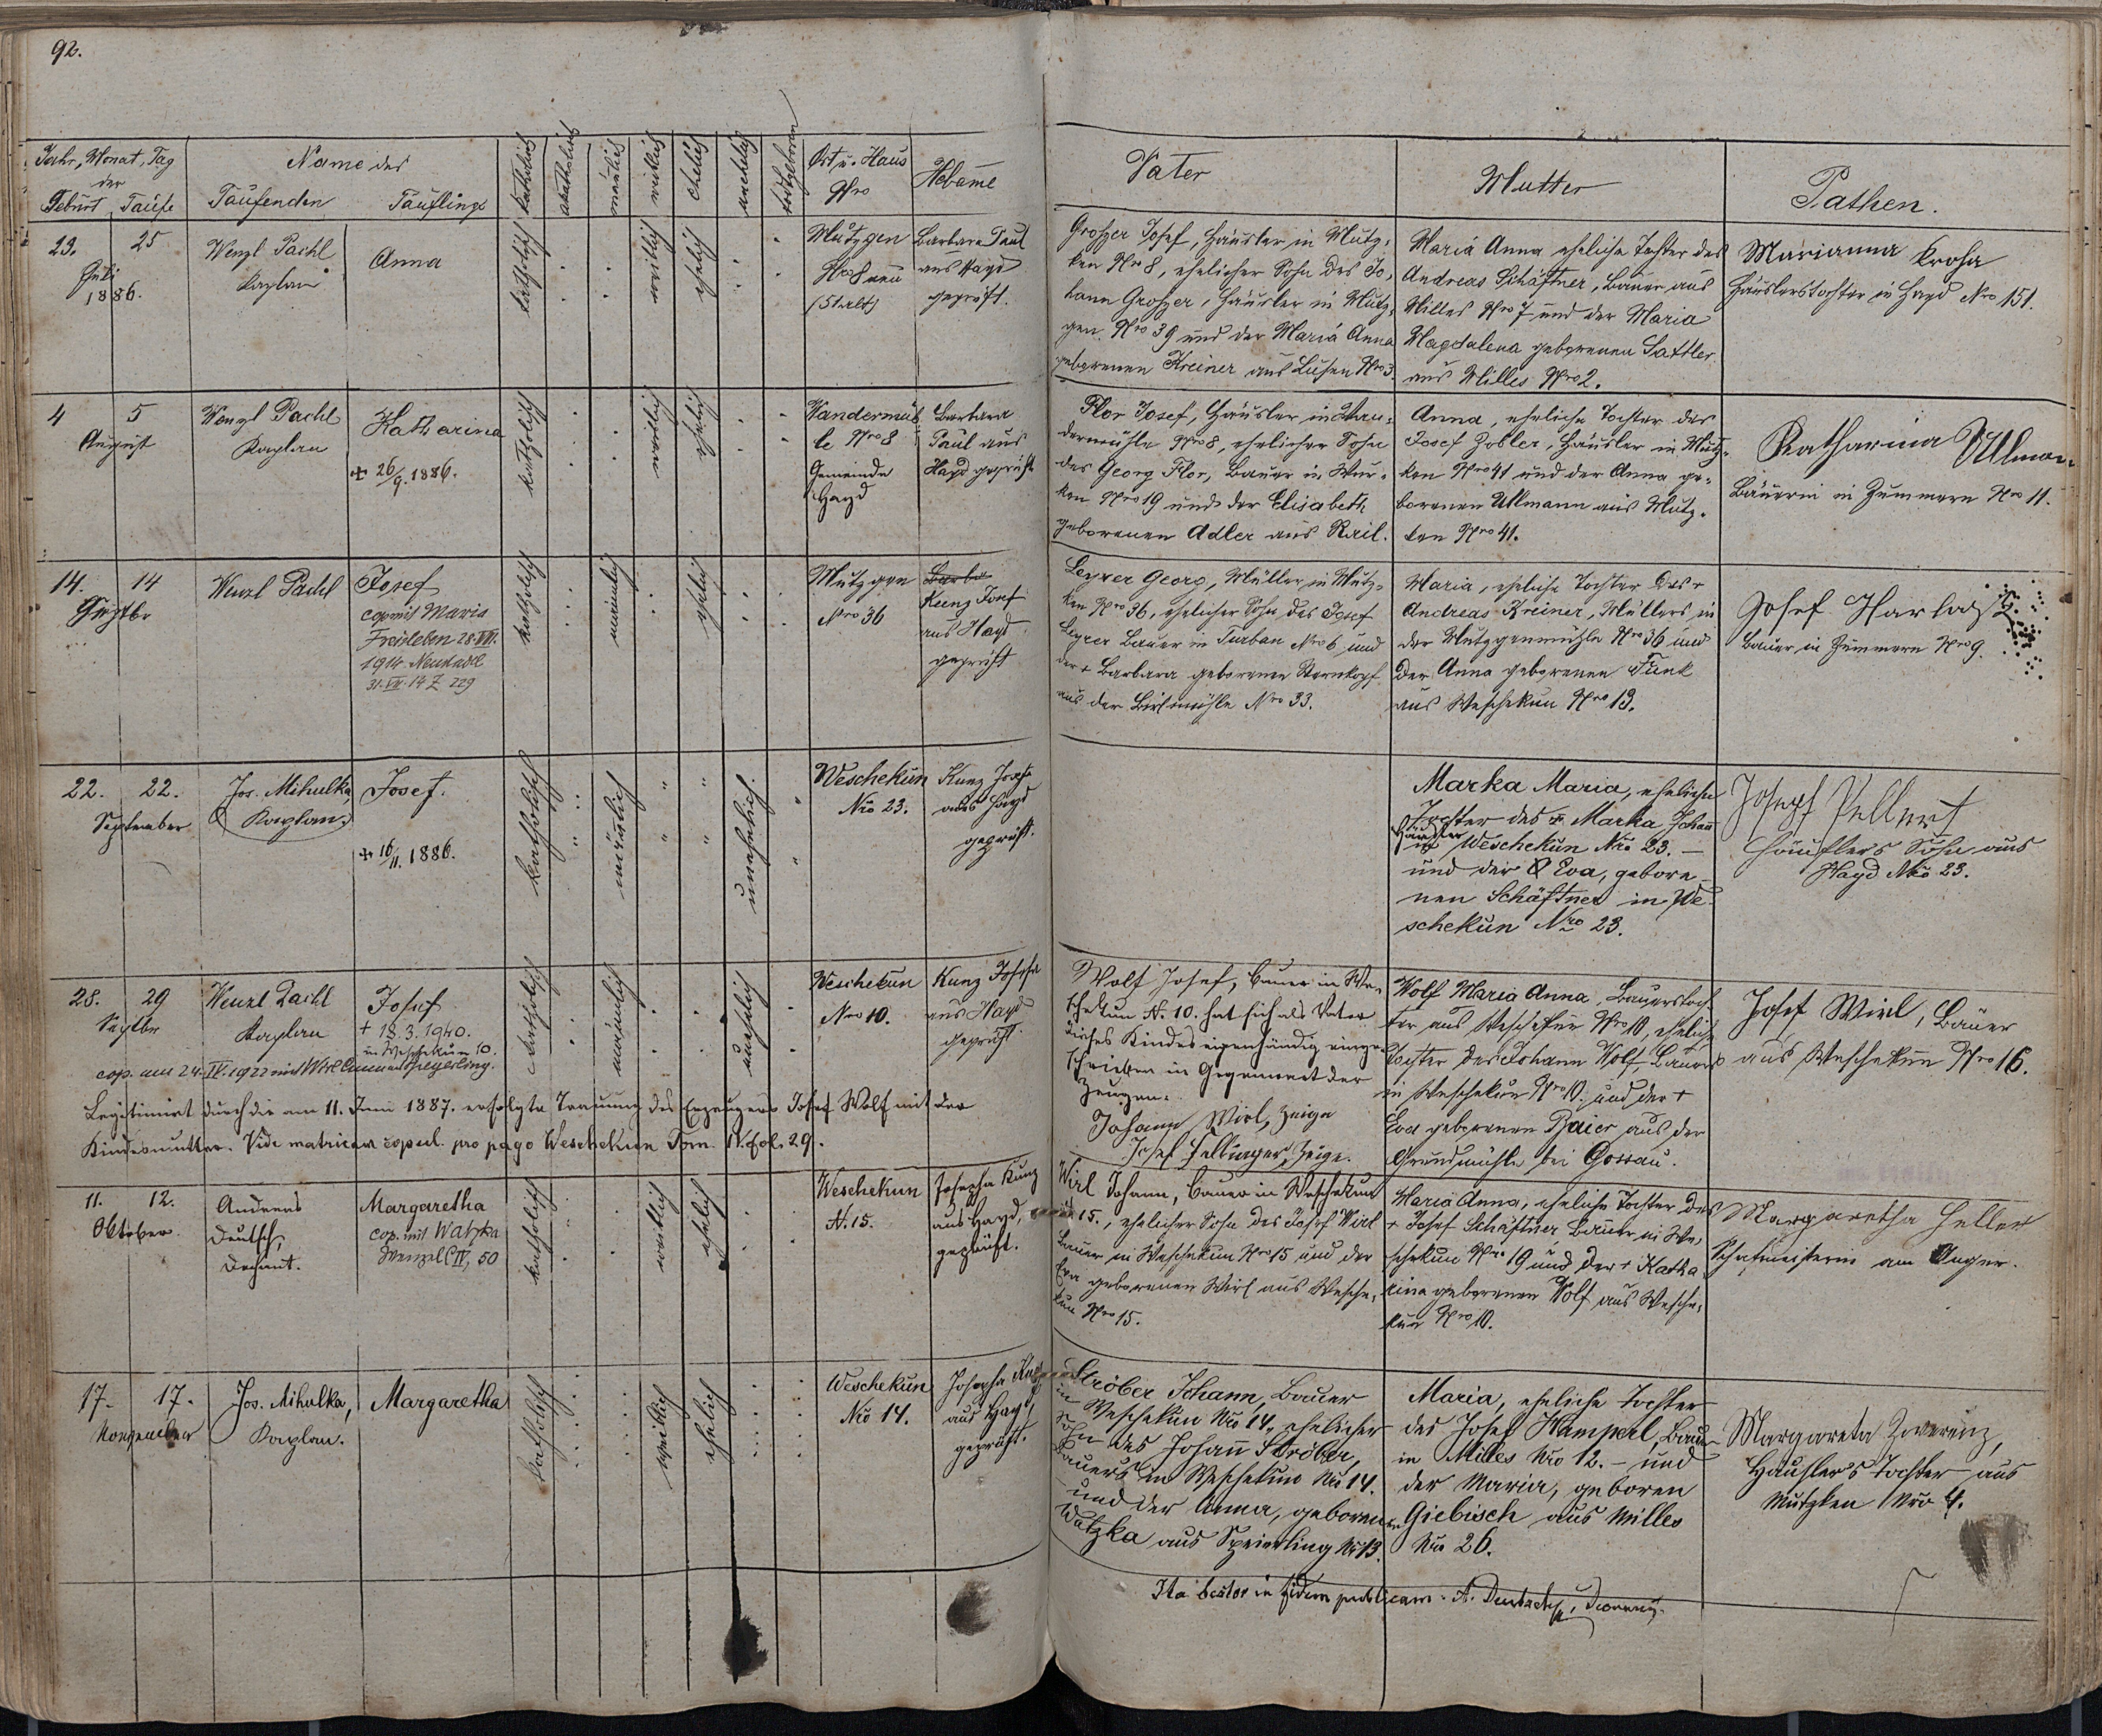 92.
Jahr, Monat, Tag
der
Geburt Taufe
Name des
Taufenden Täuflings
katholisch
akatholisch
männlich
weiblich
ehelich
unehelich
todtgeboren
Ort u. Haus
Nro
Hebame
Vater
Mutter
Pathen.
23. 25
Juli
1886.
Wenzl Pachl
Kaplan
Anna
katholisch
weiblich
ehelich
Mutzgen
Nro 8 neu
(51 alt)
Barbara Paul
aus Hayd
geprüft.
Großer Josef, Häusler in Mutz-
ken Nro 8, ehelicher Sohn des Jo-
hann Großer, Häusler in Mutz-
gen Nro 39 und der Maria Anna
geborenen Kreiner aus Lusen Nro 3.
Maria Anna eheliche Tochter des
Andreas Schäftner, Bauer aus
Milles Nro 7 und der Maria
Magdalena geborenen Sattler
aus Milles Nro 2.
Marianna Kroha
Häuslerstochter in Hayd Nro 151.
4 5
August
Wenzl Pachl
Kaplan
Katharina
+ 26/9. 1886.
katholisch
weiblich
ehelich
Wandermüh
le Nro 8
Gemeinde
Hayd
Barbara
Paul aus
Hayd geprüft
Flor Josef, Häusler in Wan-
dermühle Nro 8, ehelicher Sohn
des Georg Flor, Bauer in Wur-
ken Nro 19 und der Elisabeth
geborenen Adler aus Rail.
Anna, eheliche Tochter des
Josef Zobler, Häusler in Mutz-
ken Nro 41 und der Anna ge-
borenen Ullmann aus Mutz-
ken Nro 41.
Katharina Ullman-
Bäuerin in Zummern Nro 11.
14. 14
Septbr
Wenzl Pachl
Josef
cop. mit Maria
Freisleben 28. VII.
1914 Neustadl
31. VII. 14 Z 229
katholisch
männlich
ehelich
Mutzgen
Nro 36
Barba
Kunz Josef
aus Hayd
geprüft
Leyrer Georg, Müller in Mutz-
ken Nro 36, ehelicher Sohn des Josef
Leyrer Bauer in Turban Nro 6 und
der + Barbara geborenen Sternkopf
aus der Birkmühle Nro 33.
Maria, eheliche Tochter des +
Andreas Kreiner, Müllers in
der Mutzgenmühle Nro 36 und
der Anna geborenen Funk
aus Weschekun Nro 13.
Josef Harlas
Bauer in Zummern Nro 9.
22. 22.
September
Jos. Mihulka,
Kaplan.
Josef.
+ 16/11. 1886.
katholisch
männlich
unehelich.
Weschekun
Nro 23.
Kunz Josefa
aus Hayd
geprüft.
Marka Maria, eheliche
Tochter des + Marka Johann
Häusler
in Weschekun Nro 23. –
und der Eva, gebore-
nen Schäftner in We-
schekun Nro 23.
Joseph Pellert
Häuslers Sohn aus
Hayd Nro 23.
28. 29
Septbr
Wenzl Pachl
Kaplan
Josef
+ 18. 3. 1940.
in Weschekun 10.
cop. am 24. IV. 1922 mit Wirl Anna aus Speyerling.
katholisch
männlich
unehelich
Weschekun
Nro 10.
Kunz Josefa
aus Hayd
geprüft
Wolf Josef, Bauer in We-
schekun N. 10. hat sich als Vater
dieses Kindes eigenhändig einge-
schrieben in Gegenwart der
Zeugen.
Johann Wirl, Zeuge
Josef Fellinger, Zeuge.
Wolf Maria Anna, Bauerstoch-
ter aus Weschekun Nro 10, eheliche
Tochter des Johann Wolf Bauers
in Weschekun Nro 10. und der +
Eva geborenen Baier aus der
Grundmühle bei Gossau.
Josef Wirl, Bauer
aus Weschekun Nro 16.
Legitimirt durch die am 11. Juni 1887. erfolgte Trauung des Erzeugers Josef Wolf mit der
Kindesmutter. Vide matricam copul. pro pago Weschekun Tom. IV. fol. 29.
11. 12.
Oktober
Andreas
Deutsch,
Dechant.
Margaretha
cop. mit Watzka
Wenzel IV, 50
katholisch
weiblich
ehelich
Weschekun
N. 15.
Josepha Kunz
aus Hayd,
geprüft.
Wirl Johann, Bauer in Weschekun
15., ehelicher Sohn des Josef Wirl
Bauer in Weschekun Nro 15 und der
Eva geborenen Wirl aus Wesche-
kun Nro 15.
Maria Anna, eheliche Tochter des
+ Josef Schäftner, Bauer in We-
schekun Nro 19 und der + Katha-
rina geborenen Wolf aus Wesche-
kun Nro 10.
Margaretha Heller
Schafmeisterin am Anger.
17. 17.
November
Jos. Mihulka,
Kaplan.
Margaretha
katholisch
weiblich
ehelich
Weschekun
Nro 14.
Josepha Kunz
aus Hayd,
geprüft.
Ströber Johann, Bauer
in Weschekun Nro 14., ehelicher
Sohn des Johann Ströber,
Bauers in Weschekun Nro 14.
und der Anna, geborenen
Watzka aus Speierling Nro 13.
Maria, eheliche Tochter
des Josef Hamperl, Bauer
in Milles Nro 12. – und
der Maria, geboren
Giebisch aus Milles
Nro 26.
Margareta Zwerenz,
Häusler's Tochter aus
Mutzken Nro 4.
Ita testor in fidem publicam. A. Deutsch,